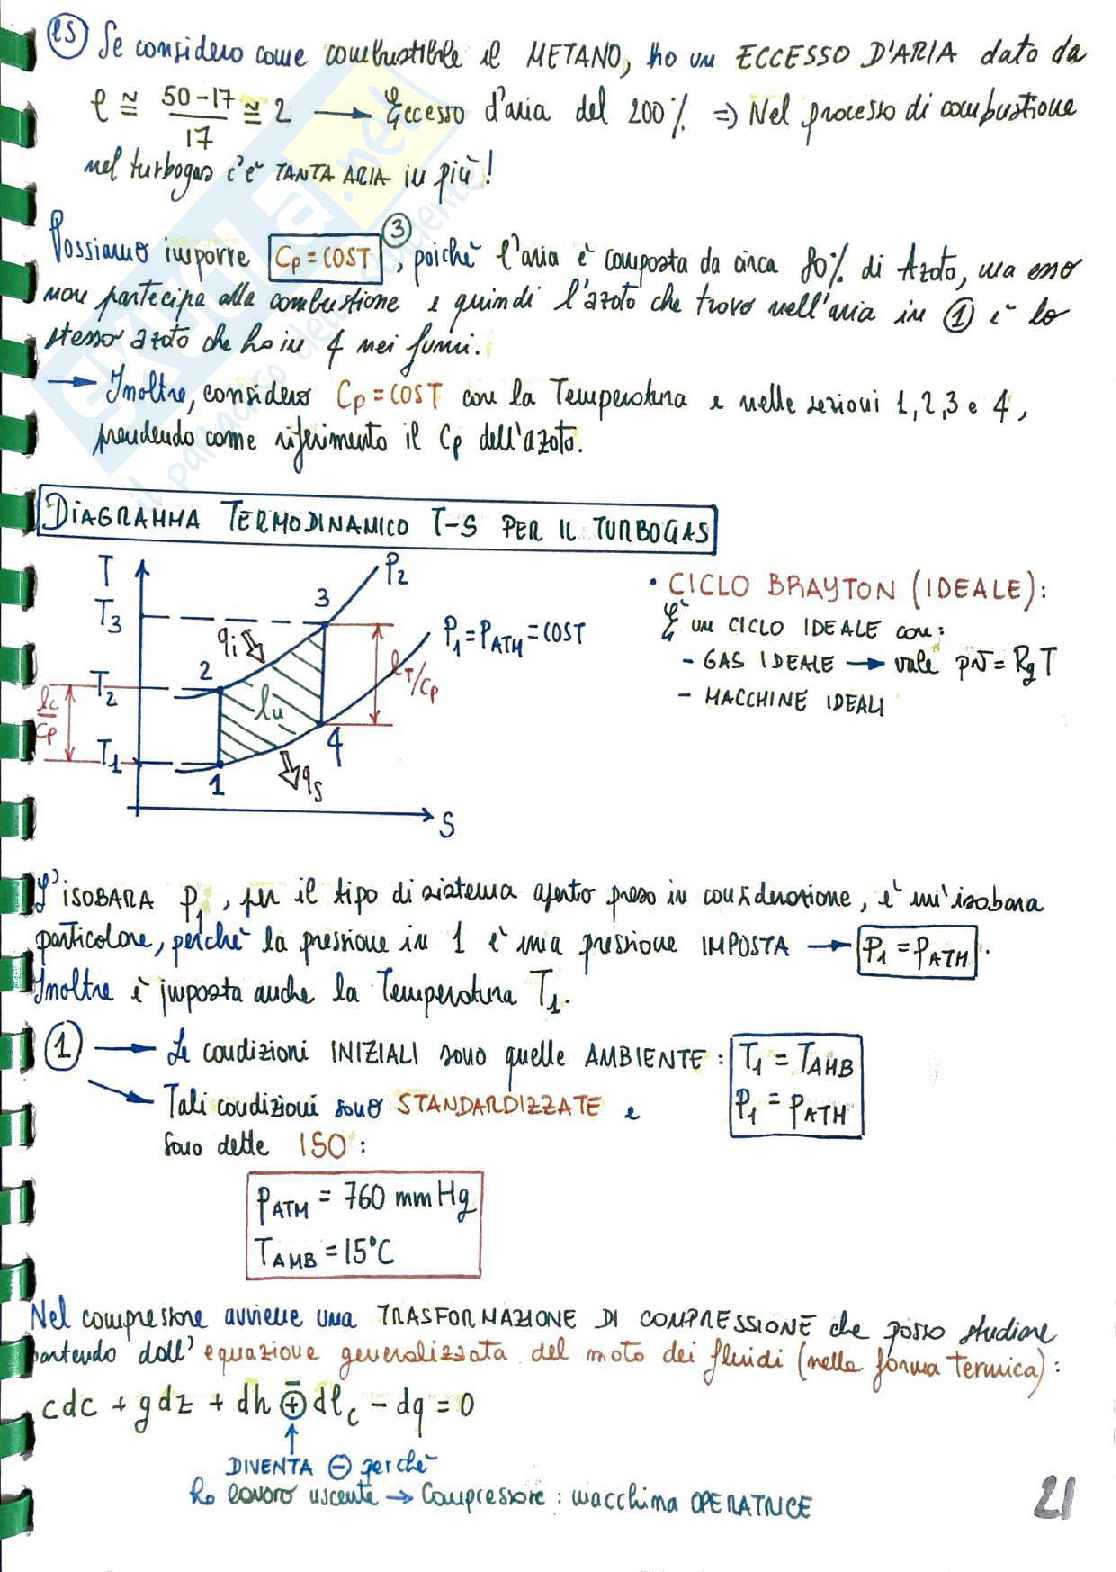 ES Se considero come combustibile il METANO, ho un ECCESSO D'ARIA dato da
e ≅ 50-17/17 ≅ 2 → Eccesso d'aria del 200% ⇒ Nel processo di combustione
nel turbogas c'è TANTA ARIA in più!
Possiamo imporre Cp = COST ③, poichè l'aria è composta da circa 80% di Azoto, ma esso
non partecipa alla combustione e quindi l'azoto che trovo nell'aria in ① è lo
stesso azoto che ho in 4 nei fumi.
→ Inoltre, considero Cp = COST con la Temperatura e nelle sezioni 1,2,3 e 4,
prendendo come riferimento il Cp dell'azoto.
DIAGRAMMA TERMODINAMICO T-S PER IL TURBOGAS
T
P2
T3
3
qi
P1 = PATM = COST
2
lT/Cp
T2
lc/Cp
lu
T1
4
1
qs
S
• CICLO BRAYTON (IDEALE):
È un CICLO IDEALE con:
- GAS IDEALE → vale pv = RgT
- MACCHINE IDEALI
L'ISOBARA P1, per il tipo di sistema aperto preso in considerazione, è un'isobara
particolare, perchè la pressione in 1 è una pressione IMPOSTA → P1 = PATM.
Inoltre è imposta anche la Temperatura T1.
① → Le condizioni INIZIALI sono quelle AMBIENTE: T1 = TAMB
P1 = PATM
→ Tali condizioni sono STANDARDIZZATE e
sono dette ISO:
PATM = 760 mmHg
TAMB = 15°C
Nel compressore avviene una TRASFORMAZIONE DI COMPRESSIONE che posso studiare
partendo dall'equazione generalizzata del moto dei fluidi (nella forma termica):
cdc + gdz + dh ⊕ dlc - dq = 0
-
DIVENTA ⊖ perchè
ho lavoro uscente → Compressore: macchina OPERATRICE
21
skuola.net
il paradiso dello studente